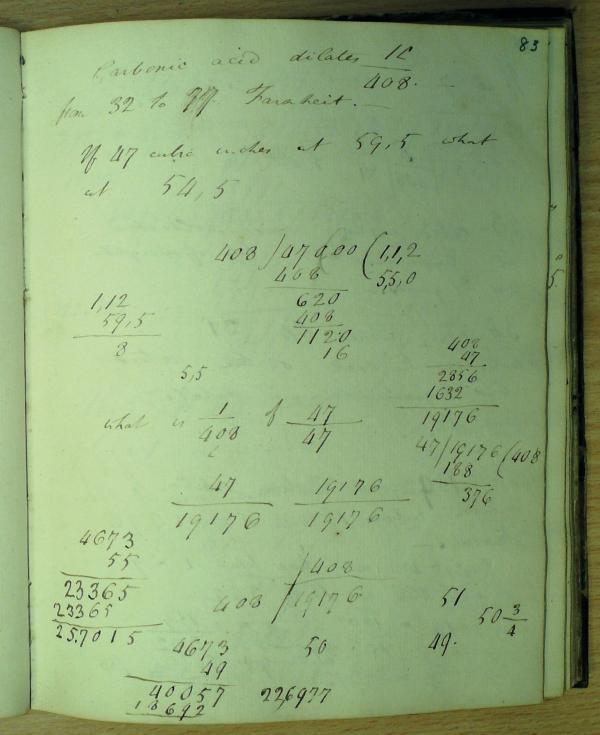 83
Carbonic acid dilates
408.
from 32 to Faraheit.
If 47 cubic inches at 59,5 what
at 54,5
408 ) 47000 ( 1,1,2
408 5,5,0
620
408
1120
16
1,12
59,5
8
5,5
408
47
2856
1632
19176
what is 1/408 of 47/47
47/19176 (408
188
376
47 19176
19176 19176
4673
55
23365
23365
257015
408
408 / 19176
51
50 3/4
4673 50 49.
49
40057 226977
18692